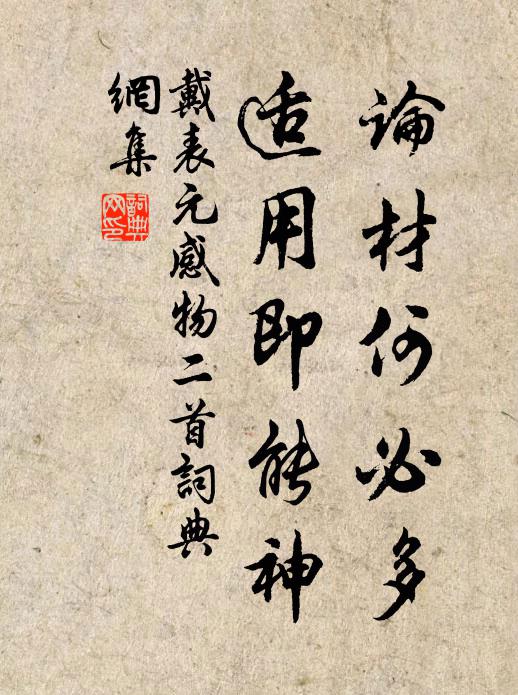 論材何必多
适用即能神
戴表元感物二首詞典
網集
詞典
网印